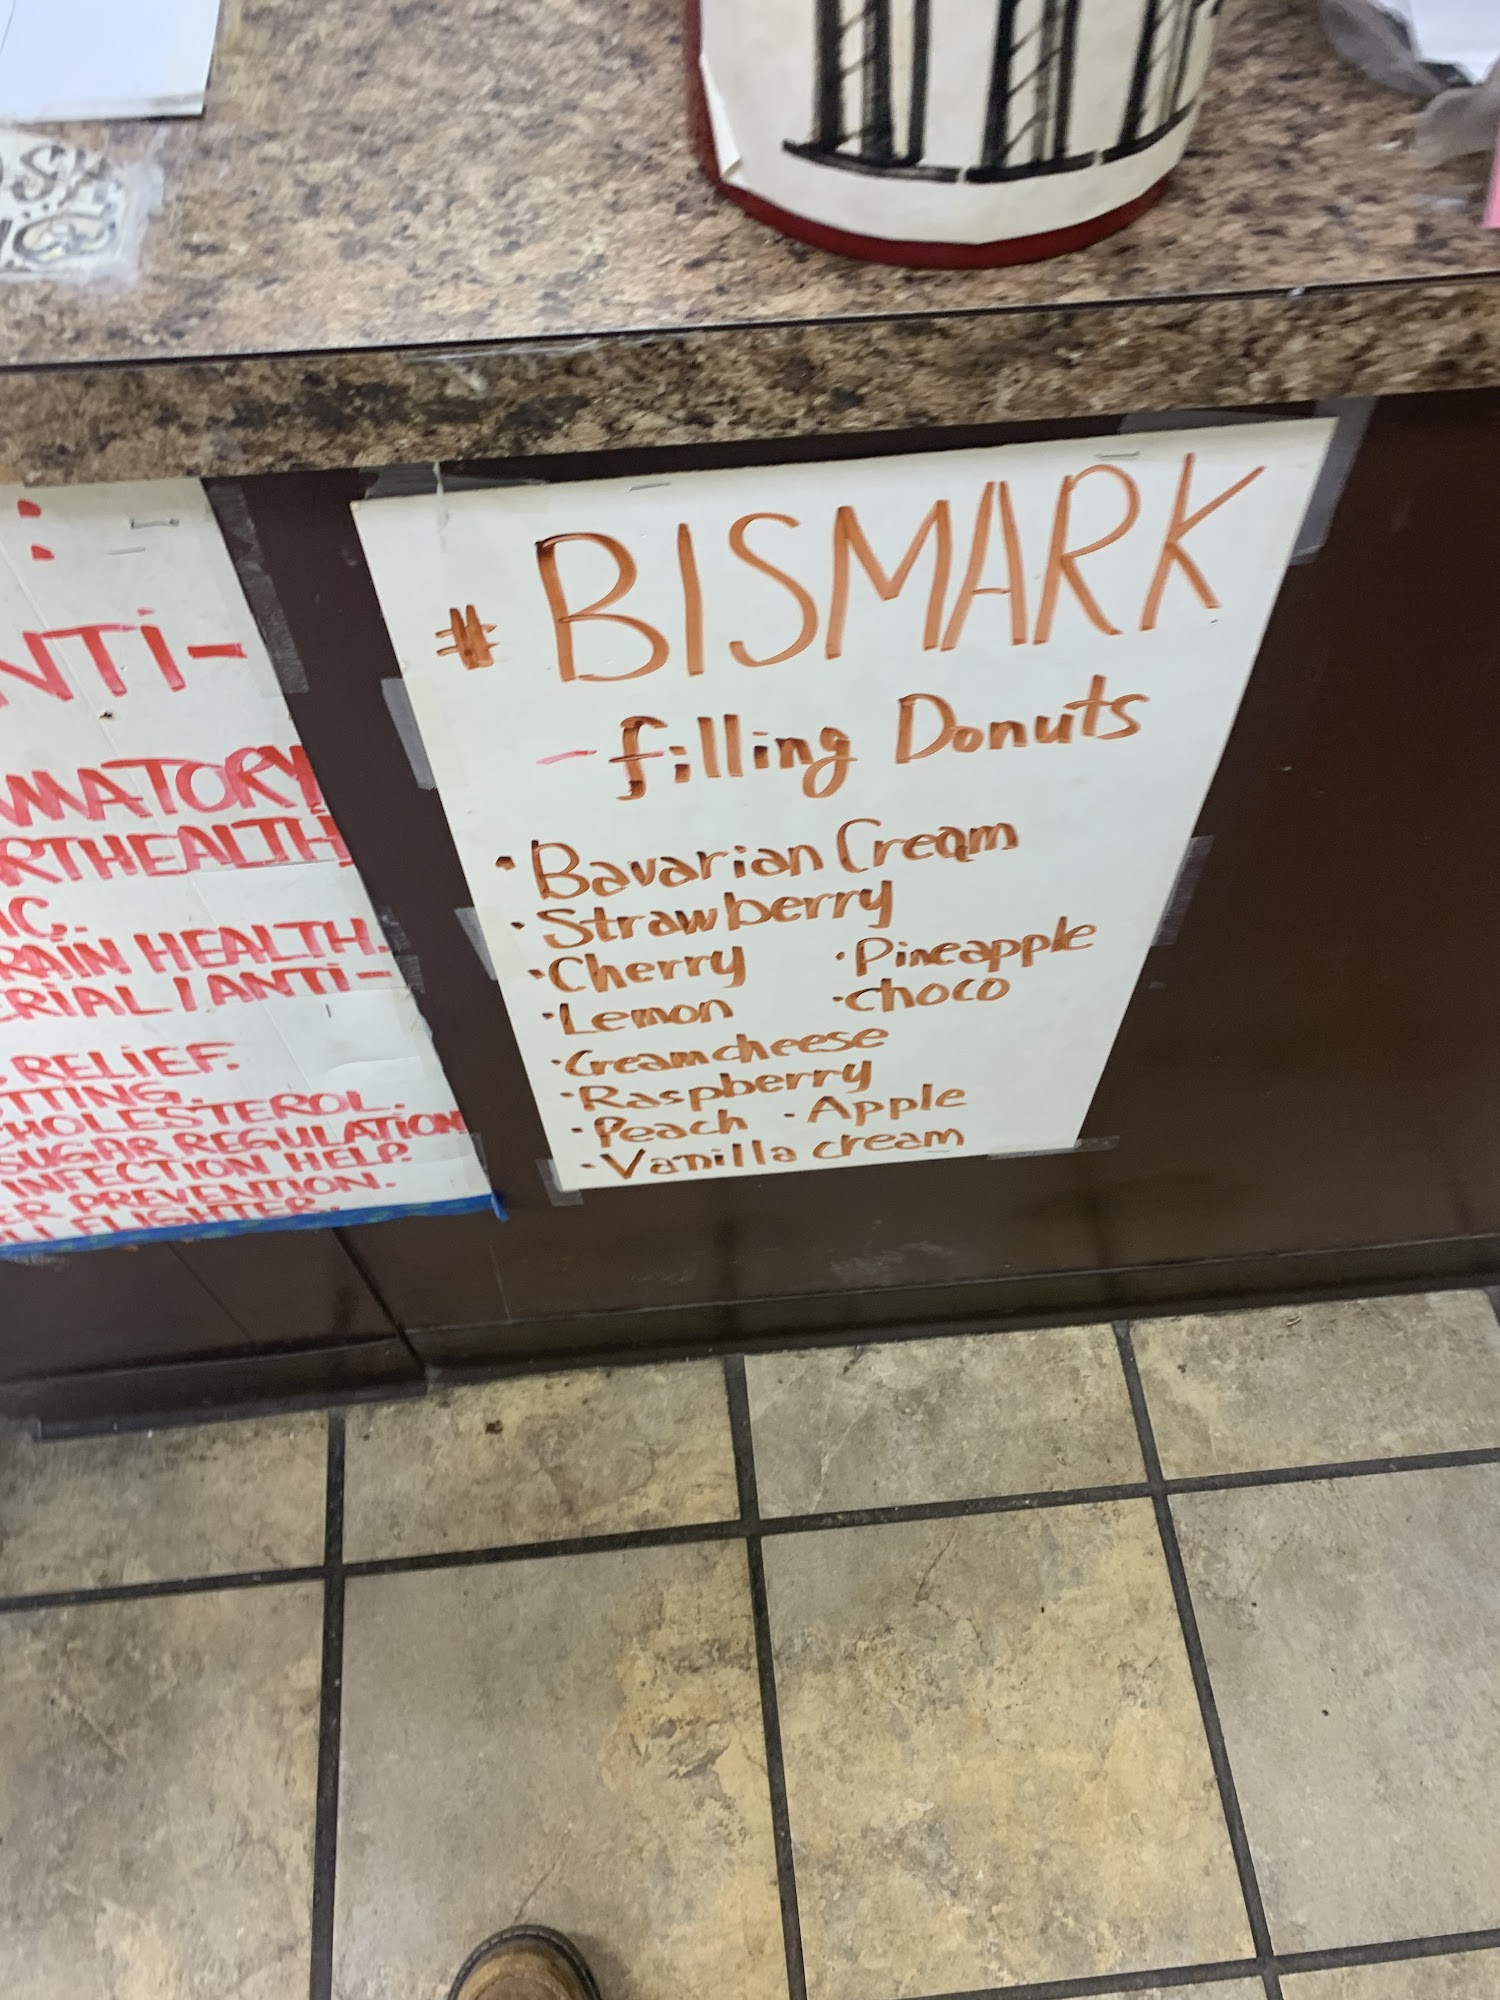 :
NTi-
MATORY
RTHEALTH,
IC.
RAIN HEALTH.
ERiAL / ANTi-
RELIEF.
TTING.
CHOLESTEROL.
SUGAR REGULATION
INFECTION HELP.
ER PREVENTION.
FLIGHTER.
# BISMARK
- filling Donuts
• Bavarian Cream
• Strawberry
• Cherry • Pineapple
• Lemon • choco
• Creamcheese
• Raspberry
• Peach • Apple
• Vanilla cream